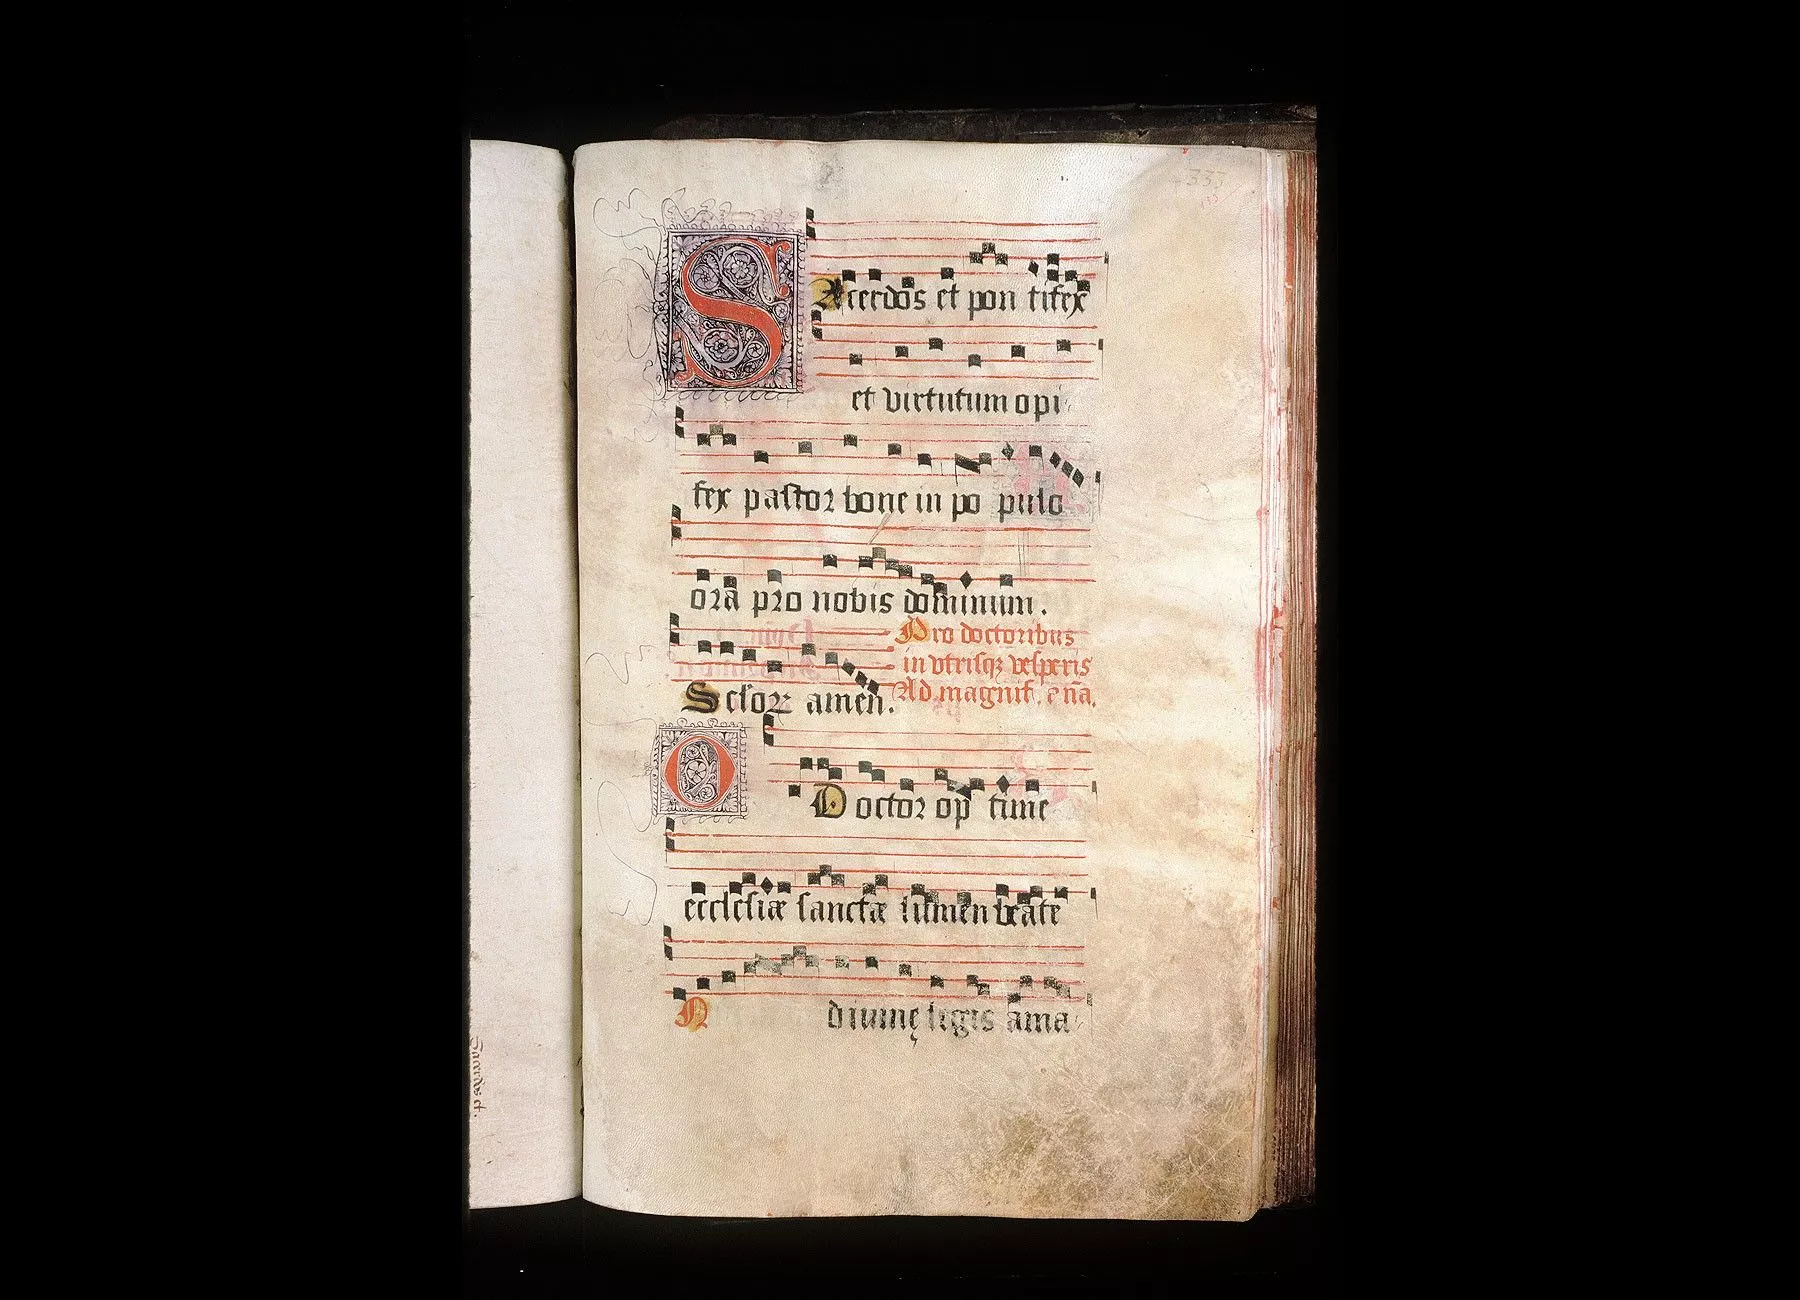 333
SAcerdos et pon tifex
et virtutum opi
fex pastor bone in po pulo
ora pro nobis dominum.
Pro doctoribus
in vtrisqȝ vesperis
Ad magnif. ana.
Sclorꝝ amen.
O Doctor op time
ecclesiæ sanctæ lumen beate
N diuinę legis ama
Sacerdos et.